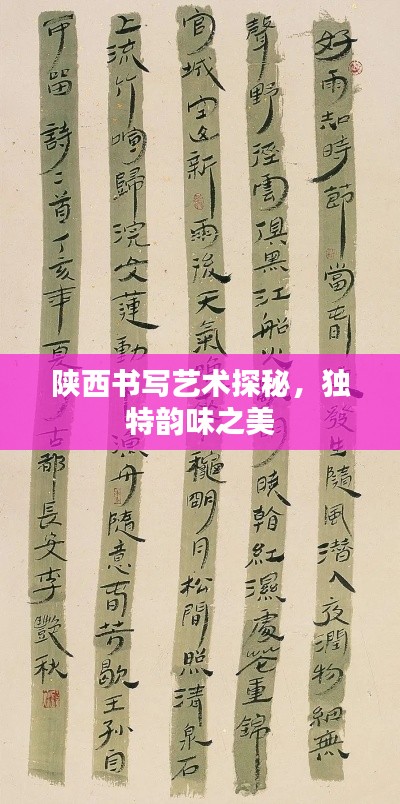 好雨知時節當春發生隨風潛入夜潤物細無
聲野徑雲俱黑江船火明曉看紅濕處花重錦
官城空山新雨後天氣晚穐明月松間照清泉石
上流竹喧歸浣女蓮動漁舟隨意春芳歇王孫自
可留詩二首丁亥年夏古都長安李艷秋
陕西书写艺术探秘，独
特韵味之美